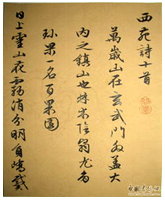 西苑詩十首
萬歲山在玄武門外蓋大
内之鎮山也
一名百果園
日上靈山花霧消分明員嶠戴